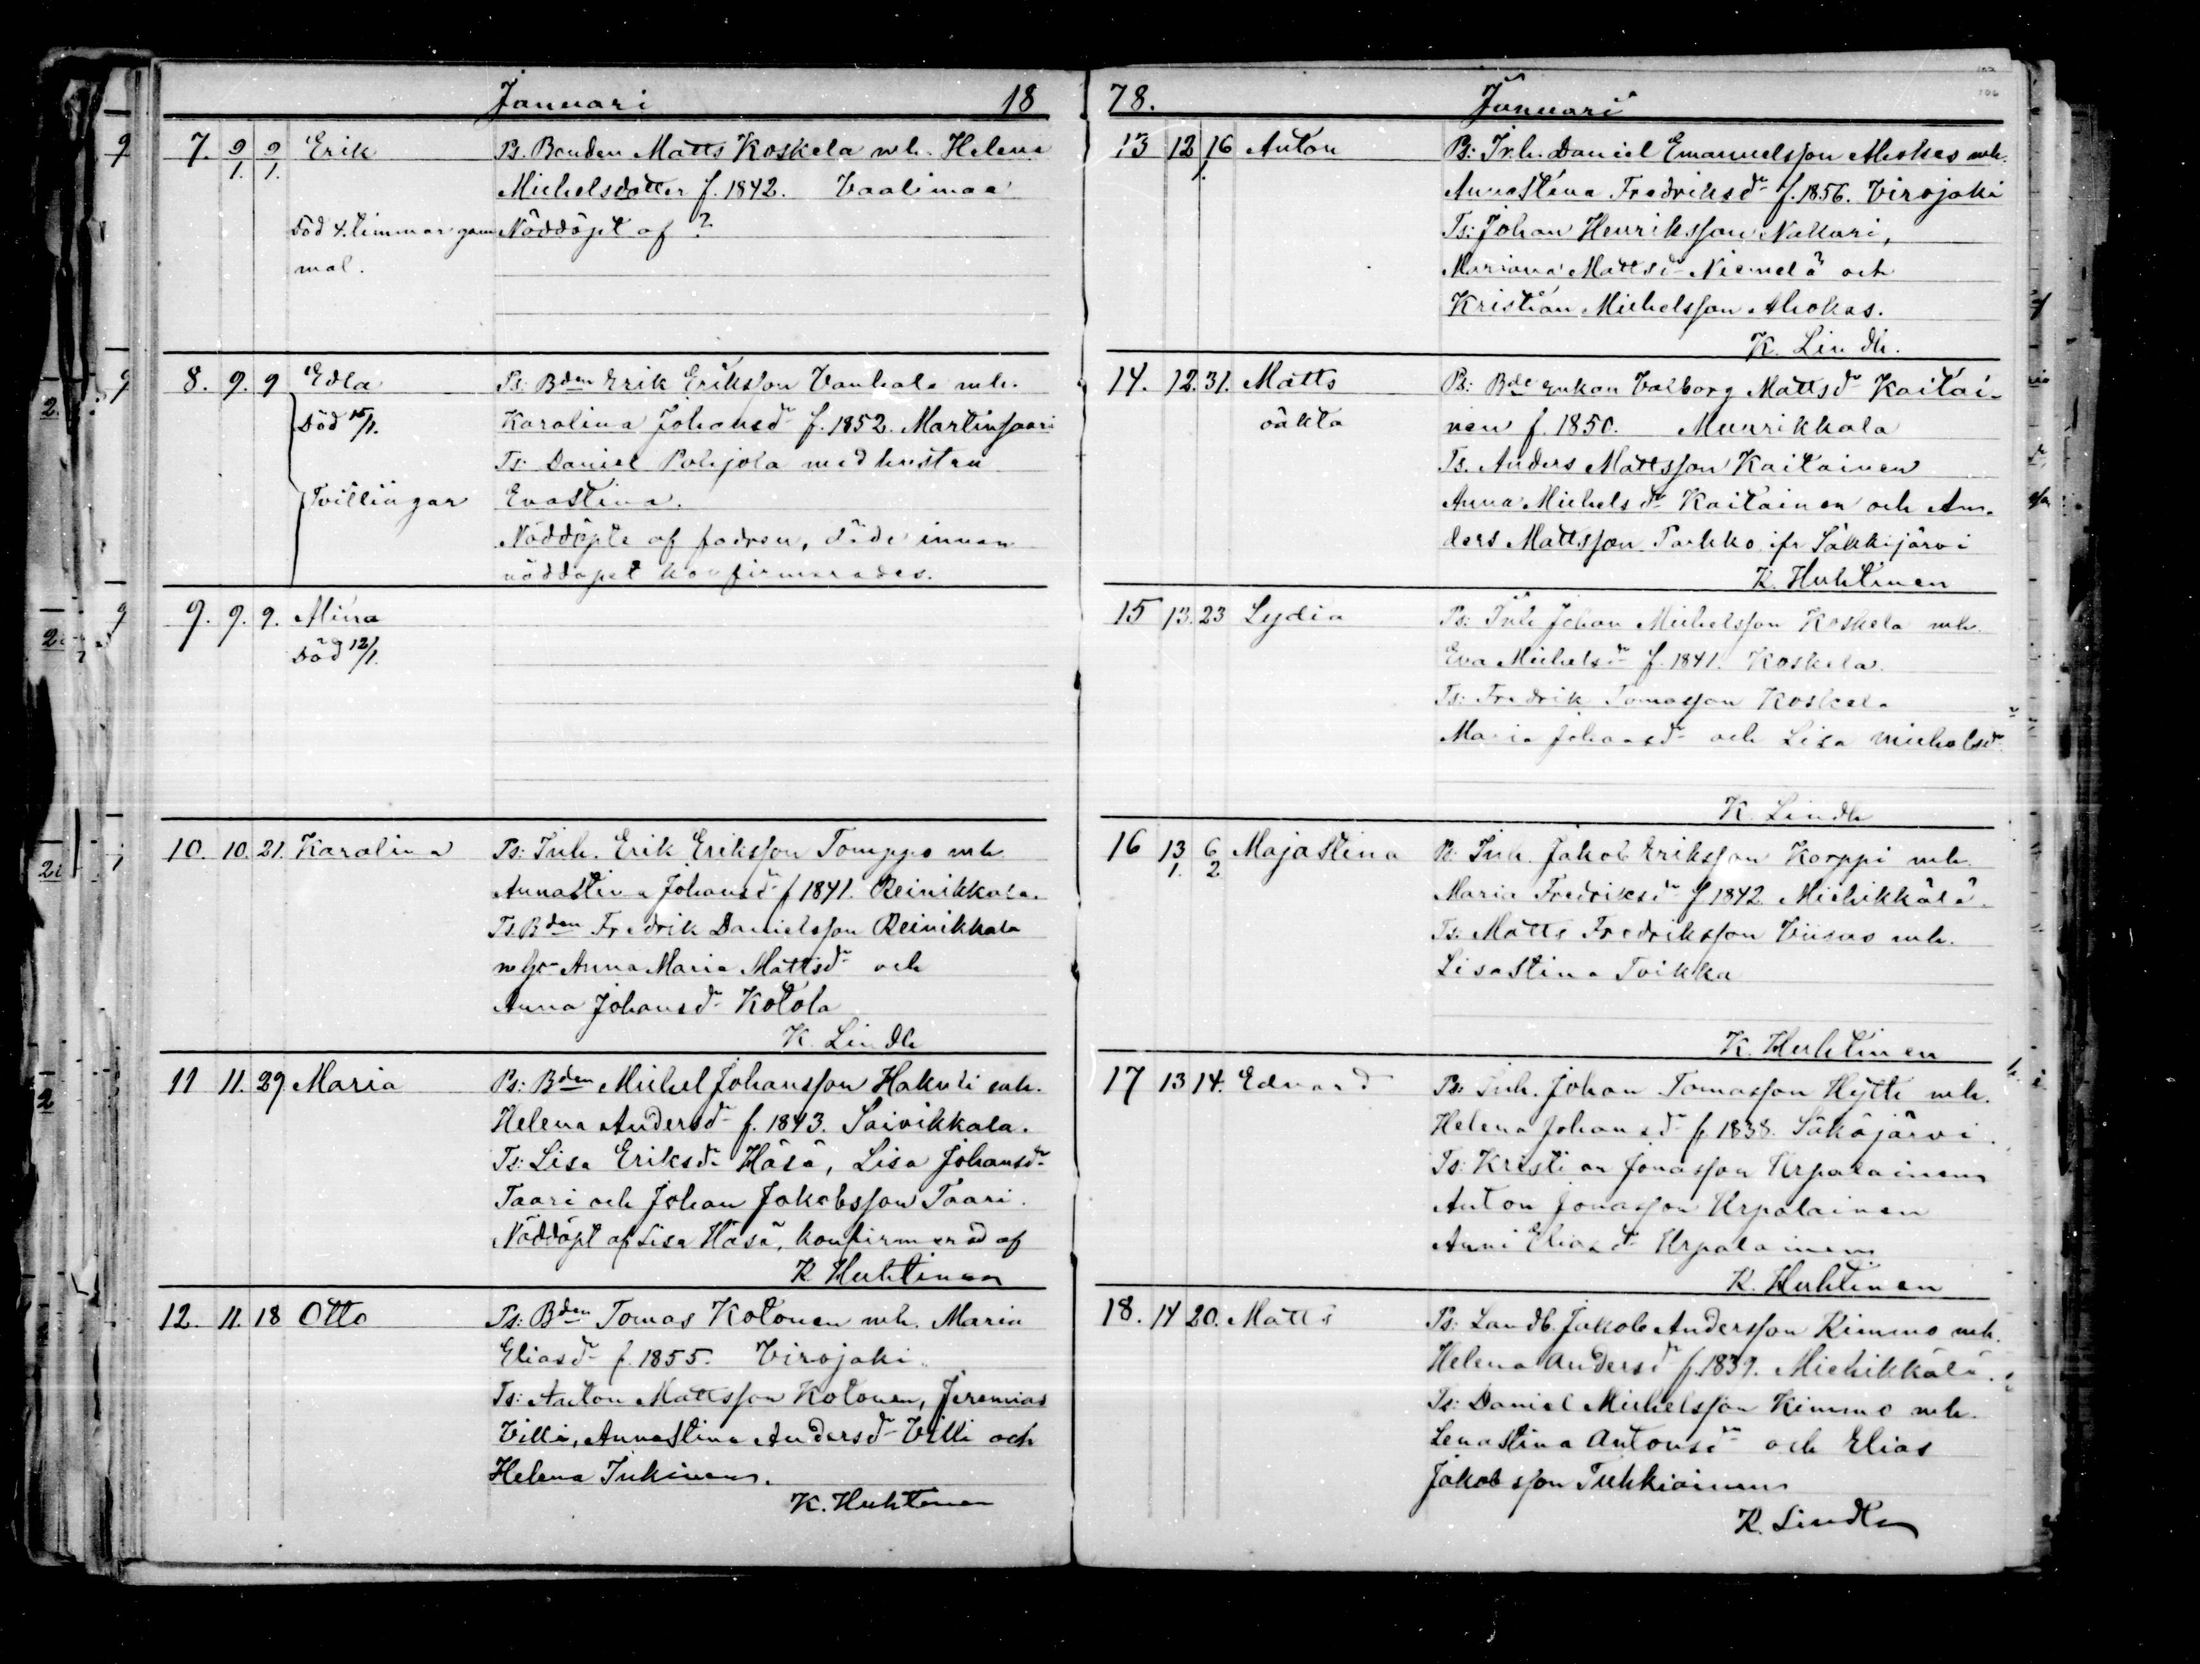 Januari 18
7. 9/1. 9/1. Erik Ps. Bonden Matts Koskela mh. Helena
Michelsdotter f. 1842. Vaalimaa
Död 4. timmar gam Nöddöpt af ?
mal.
8. 9. 9 Edla Ps: Bden Erik Eriksson Vanhala mh.
Död 15/1. Karolina Johansdr f. 1852. Martinsaari
Ts: Daniel Pohjola med hustru
Tvillingar Evastina.
Nöddöpte af fadren, döde innan
nöddopet konfirmerades.
9. 9. 9. Mina
Död 12/1.
10. 10. 21. Karolina Ps: Inh. Erik Eriksson Tomppo mh
Annastina Johansdr f 1841. Reinikkala.
Ts. Bden Fredrik Danielsson Reinikkala
Anna Maria Mattsdr och
Anna Johansdr Kotola
K. Lindh
11 11. 29 Maria Ps: Bden Michel Johansson Hakuli mh.
Helena Andersdr f. 1843. Saivikkala.
Ts: Lisa Eriksdr Häsä, Lisa Johansdr
Taari och Johan Jakobsson Taari.
Nöddöpt af Lisa Häsä, konfirmerad af
K. Huhtinen
12. 11. 18 Otto Ps: Bden Tomas Kotonen mh. Maria
Eliasdr f. 1855. Virojoki.
Ts: Anton Mattsson Kotonen, Jeremias
Villi, Annastina Andersdr Villi och
Helena Inkinen.
K. Huhtinen
78. Januari
13 12/1. 16 Anton Ps: Inh. Daniel Emanuelsson Ahokas mh.
Annastina Fredriksdr f. 1856. Virojoki
Ts: Johan Henriksson Nakari,
Mariana Mattsdr Niemelä och
Kristian Michelsson Ahokas.
K. Lindh.
14. 12. 31. Matts Ps: Bde enkan Valborg Mattsdr Kaitai-
oäkta nen f. 1850. Muurikkala
Ts. Anders Mattsson Kaitainen
Anna Michelsdr Kaitainen och An-
ders Mattsson Parkko ifr Säkkijärvi
K. Huhtinen
15 13. 23 Lydia Ps: Inh Johan Michelsson Koskela mh.
Eva Michelsdr f. 1841. Koskela.
Ts: Fredrik Tomasson Koskela
Maria Johansdr och Lisa Michelsdr
K. Lindh
16 13/1. 6/2 Majastina Ps: Inh. Jakob Eriksson Korppi mh.
Maria Fredriksdr f 1842 Miehikkälä.
Ts: Matts Fredriksson Viisas mh.
Lisastina Toikka
K. Huhtinen
17 13 14. Edvard Ps: Inh. Johan Tomasson Hytti mh.
Helena Johansdr f 1838. Säkäjärvi.
Ts: Kristian Jonasson Urpalainen
Anton Jonasson Urpalainen
Anni Eliasdr Urpalainen
K. Huhtinen
18. 14 20. Matts Ps: Landb. Jakob Andersson Kimmo mh.
Helena Andersdr f. 1839. Miehikkälä.
Ts: Daniel Michelsson Kimmo mh.
Lenastina Antonsdr och Elias
Jakobsson Tuhkiainen
K. Lindh